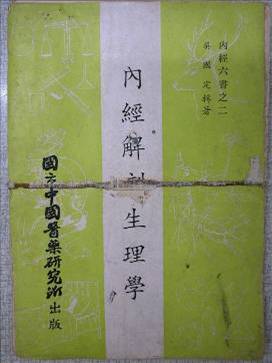 內經六書之二
吳國定編著
內經解剖生理學
國立中國醫藥研究所出版